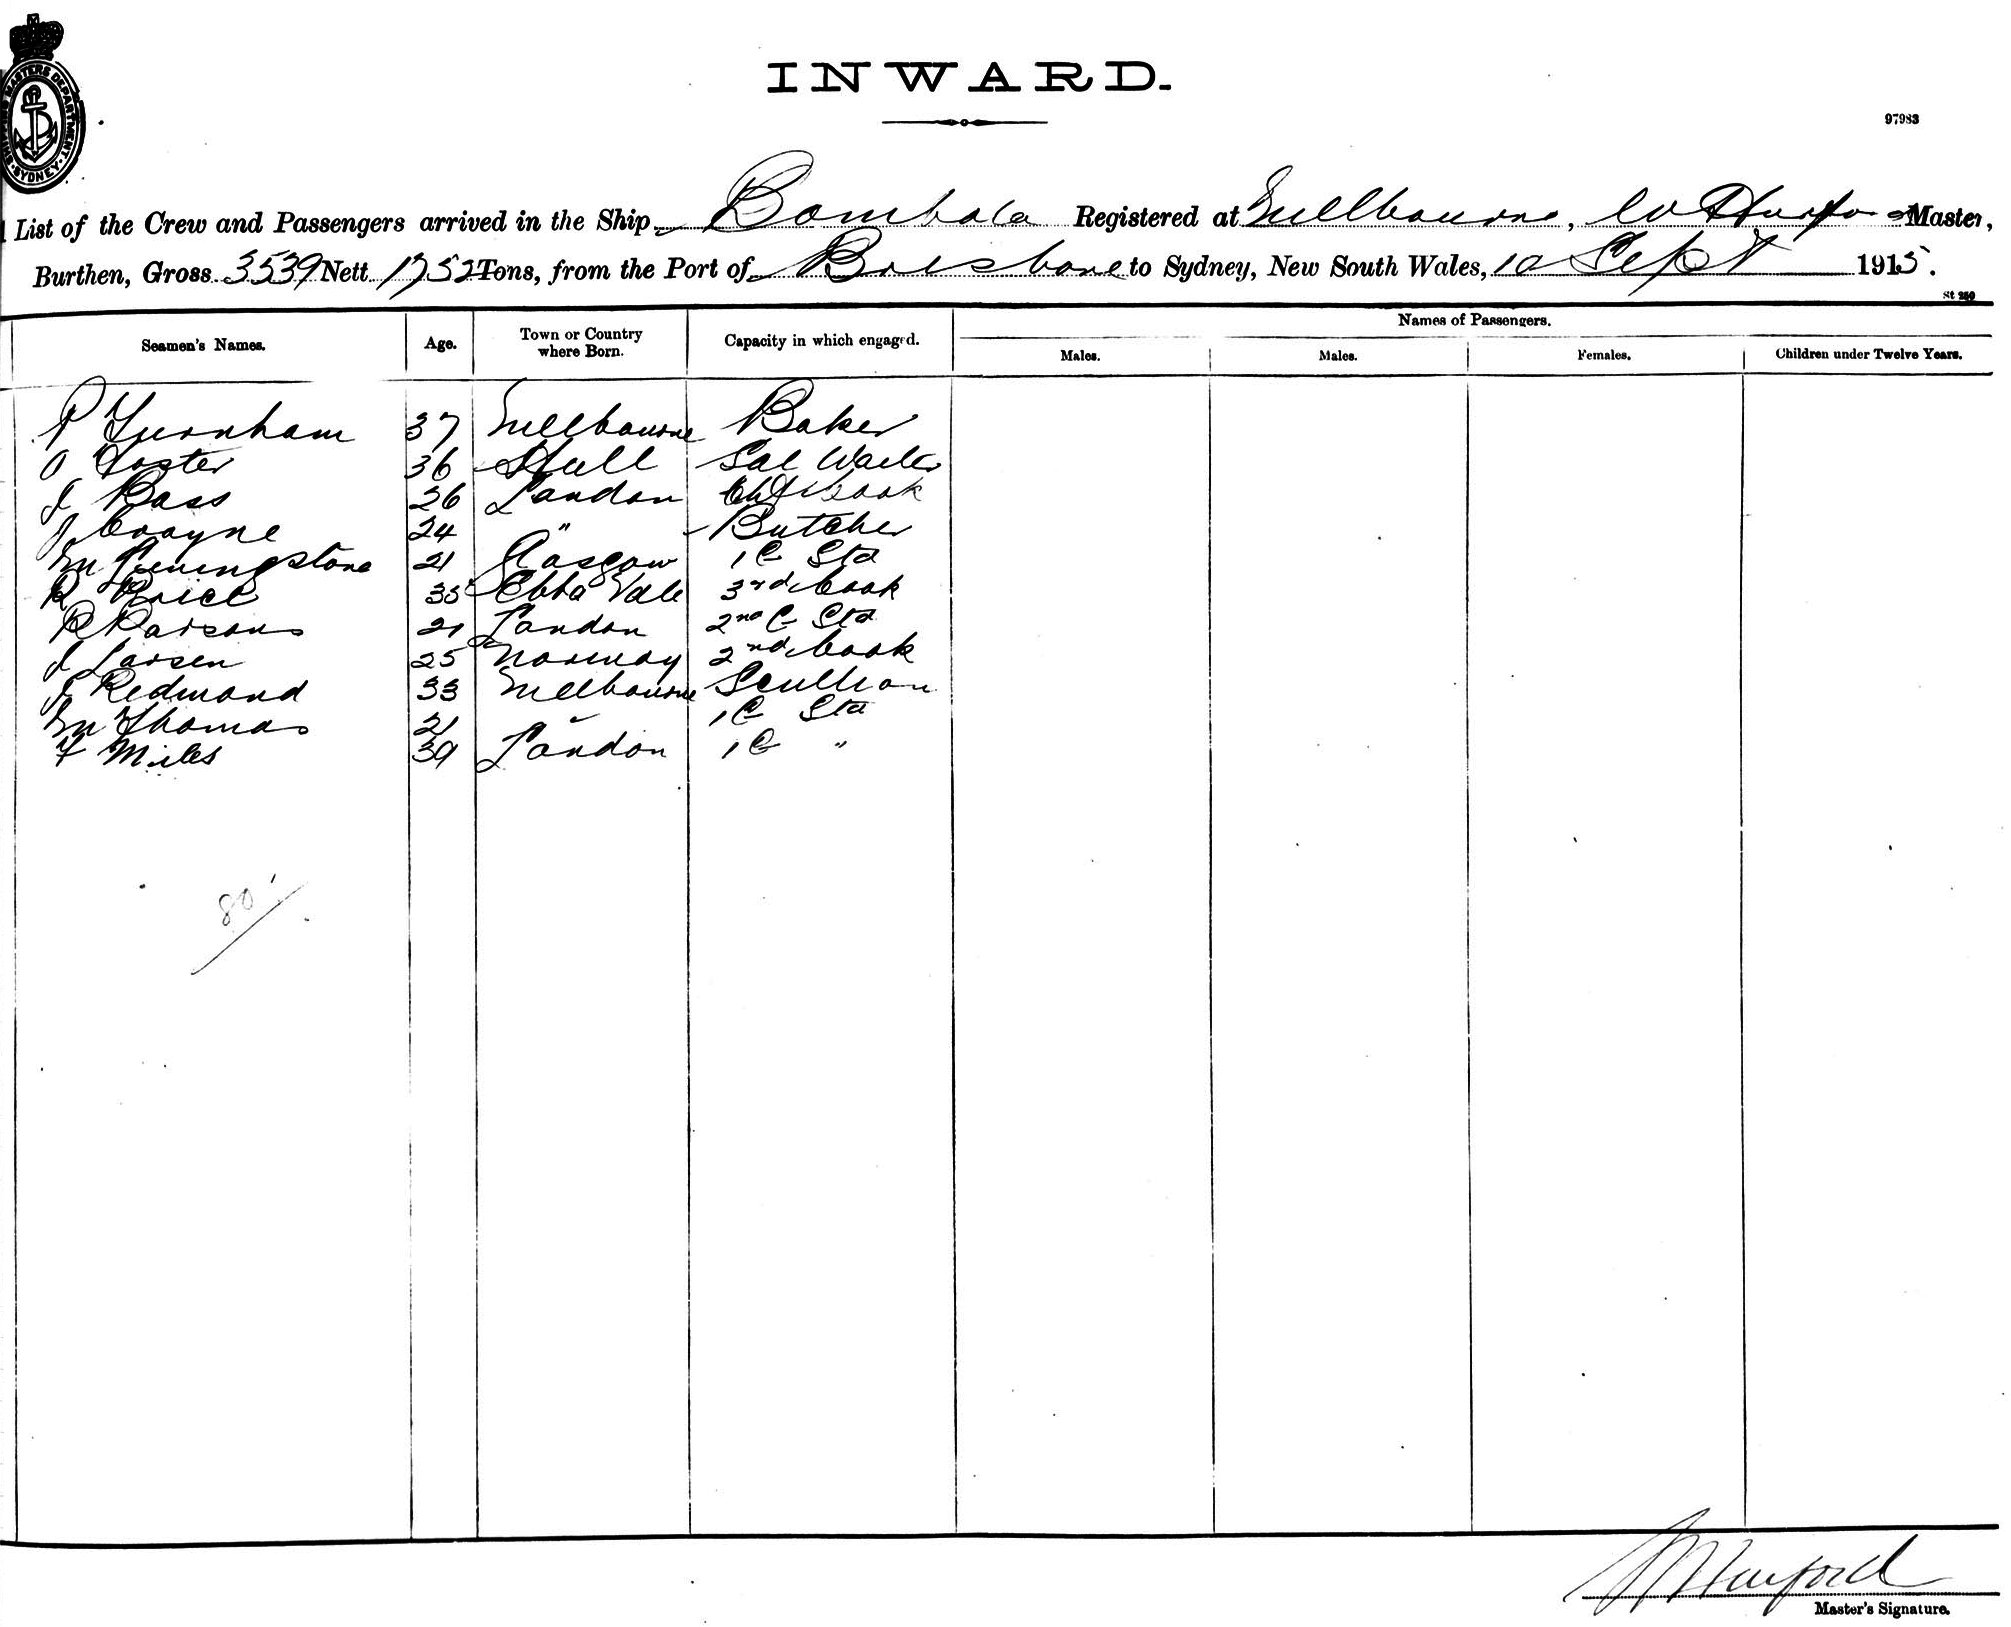 INWARD.
97983
SHIPPING MASTERS DEPARTMENT SYDNEY
List of the Crew and Passengers arrived in the Ship Bombala Registered at Melbourne, W Hurford Master,
Burthen, Gross 3539 Nett 1752 Tons, from the Port of Brisbane to Sydney, New South Wales, 10 Sept 1915.
St 250
Names of Passengers.
Seamen's Names. Age. Town or Country where Born. Capacity in which engaged. Males. Males. Females. Children under Twelve Years.
P Turnham 37 Melbourne Baker
O Foster 36 Hull Sal Waiter
J Bass 26 London Chf Cook
J Crayne 24 " Butcher
M Livingstone 21 Glasgow 1 C Std
R Price 35 Ebba Vale 3rd Cook
R Parsons 21 London 2nd C Std
J Larsen 25 Norway 2nd Cook
J Redmond 33 Melbourne Scullion
M Thomas 21 " 1 C Std
F Miles 39 London 1 C "
80
Hurford
Master's Signature.